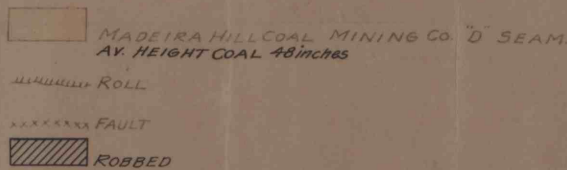 MADEIRA HILL COAL MINING CO. "D" SEAM.
AV. HEIGHT COAL 48 inches
ROLL
FAULT
ROBBED